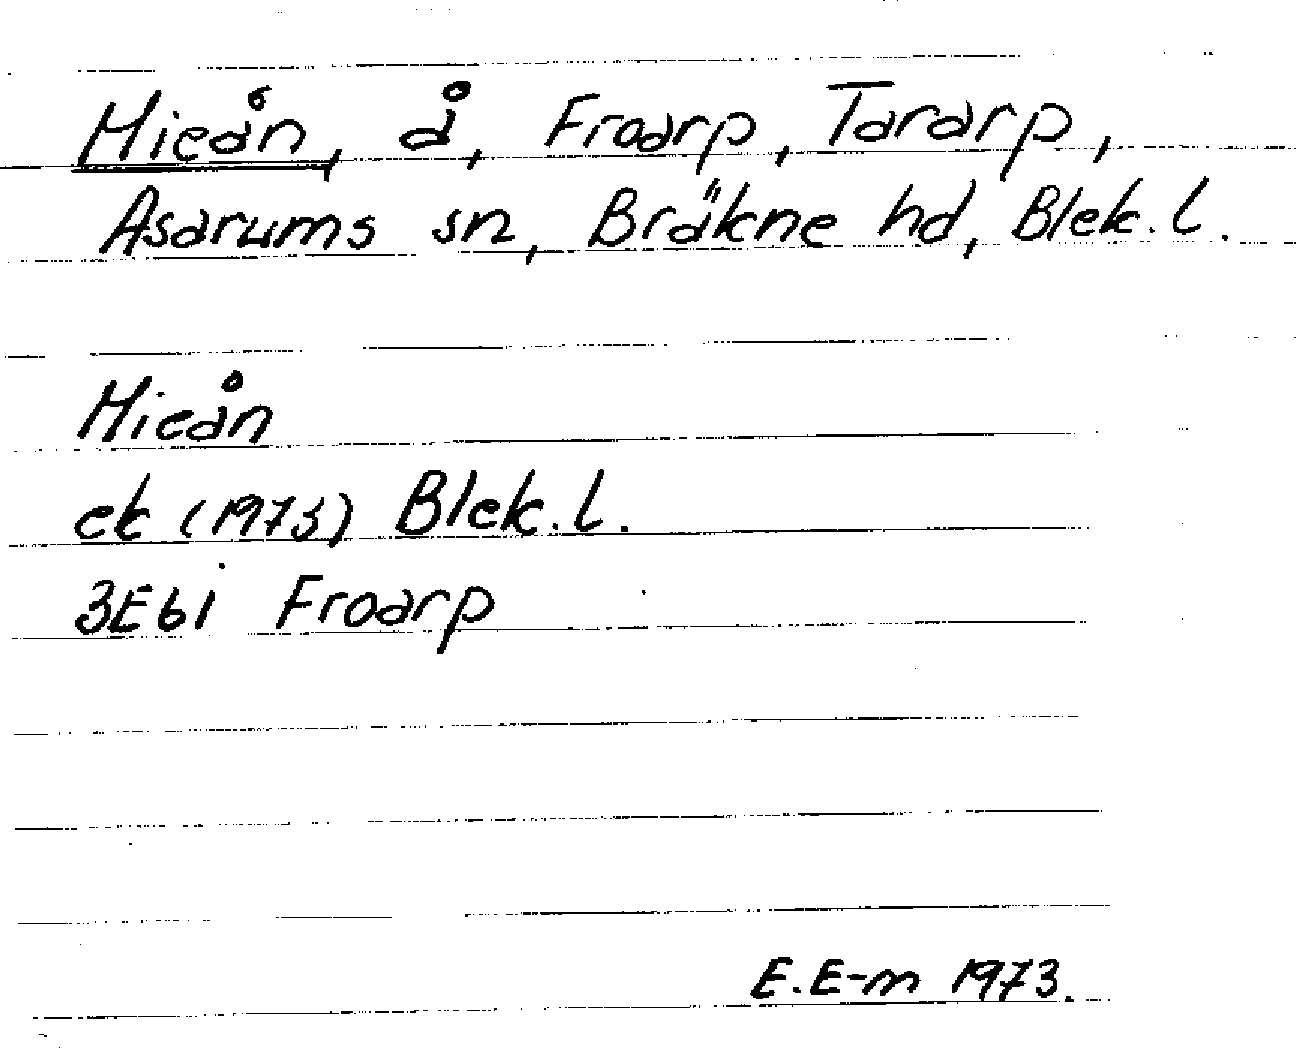 Mieån, å, Froarp, Tararp,
Asarums sn, Bräkne hd, Blek. l.
Mieån
ek (1973) Blek. l.
3E6i Froarp
E.E-m 1973.